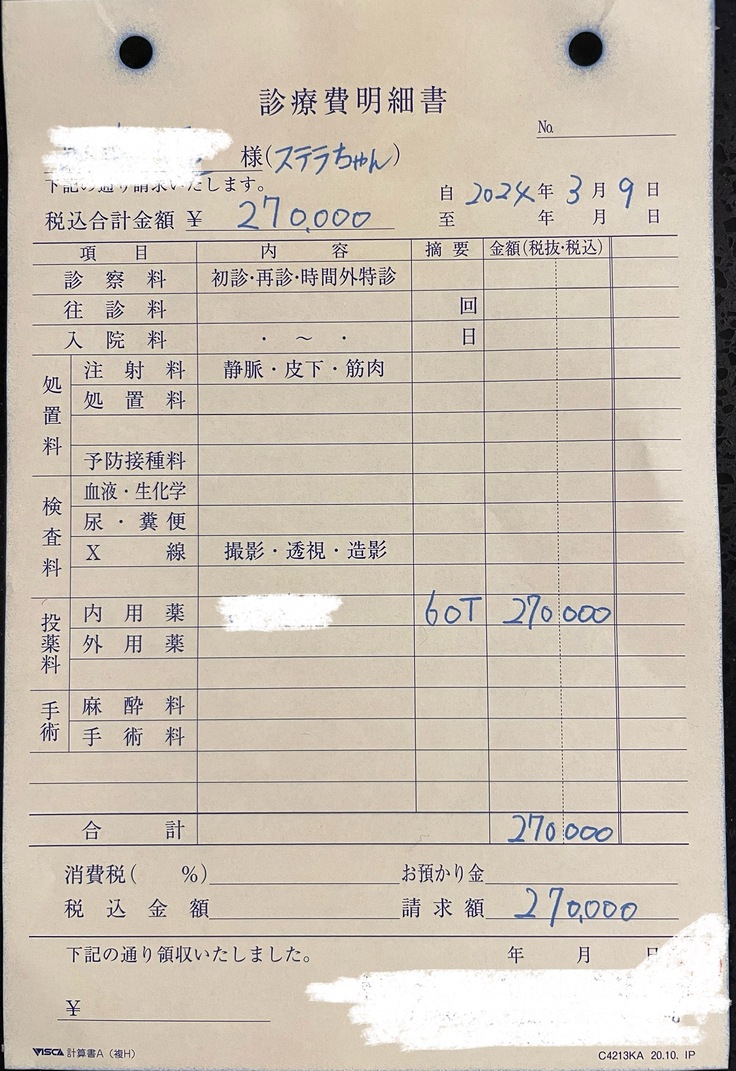 診療費明細書
No.
様(ステラちゃん)
下記の通り請求いたします。
自 2024年 3月 9日
税込合計金額 ¥ 270,000
至 年 月 日
項目 内容 摘要 金額(税抜・税込)
診察料 初診・再診・時間外特診
往診料 回
入院料 ・ ～ ・ 日
処置料
注射料 静脈・皮下・筋肉
処置料
予防接種料
検査料
血液・生化学
尿・糞便
X線 撮影・透視・造影
投薬料
内用薬 60T 270000
外用薬
手術
麻酔料
手術料
合計 270000
消費税( %) お預かり金
税込金額 請求額 270,000
下記の通り領収いたしました。 年 月 日
¥
VISCA 計算書A（複H） C4213KA 20.10. IP